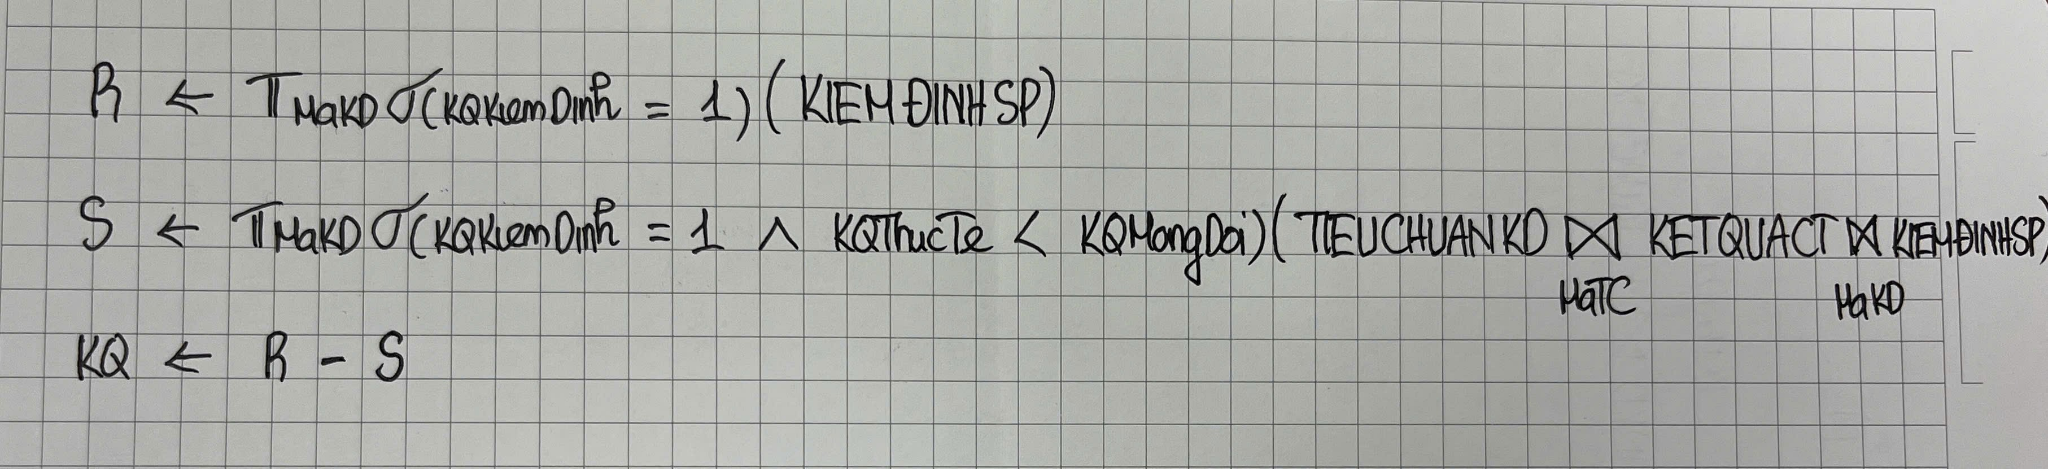 R ← π MaKD σ(KQKiemDinh = 1) (KIEMĐINHSP)
S ← π MaKD σ(KQKiemDinh = 1 ∧ KQThucTe < KQMongDoi) (TIEUCHUANKD ⋈ KETQUACT ⋈ KIEMĐINHSP)
MaTC MaKD
KQ ← R - S